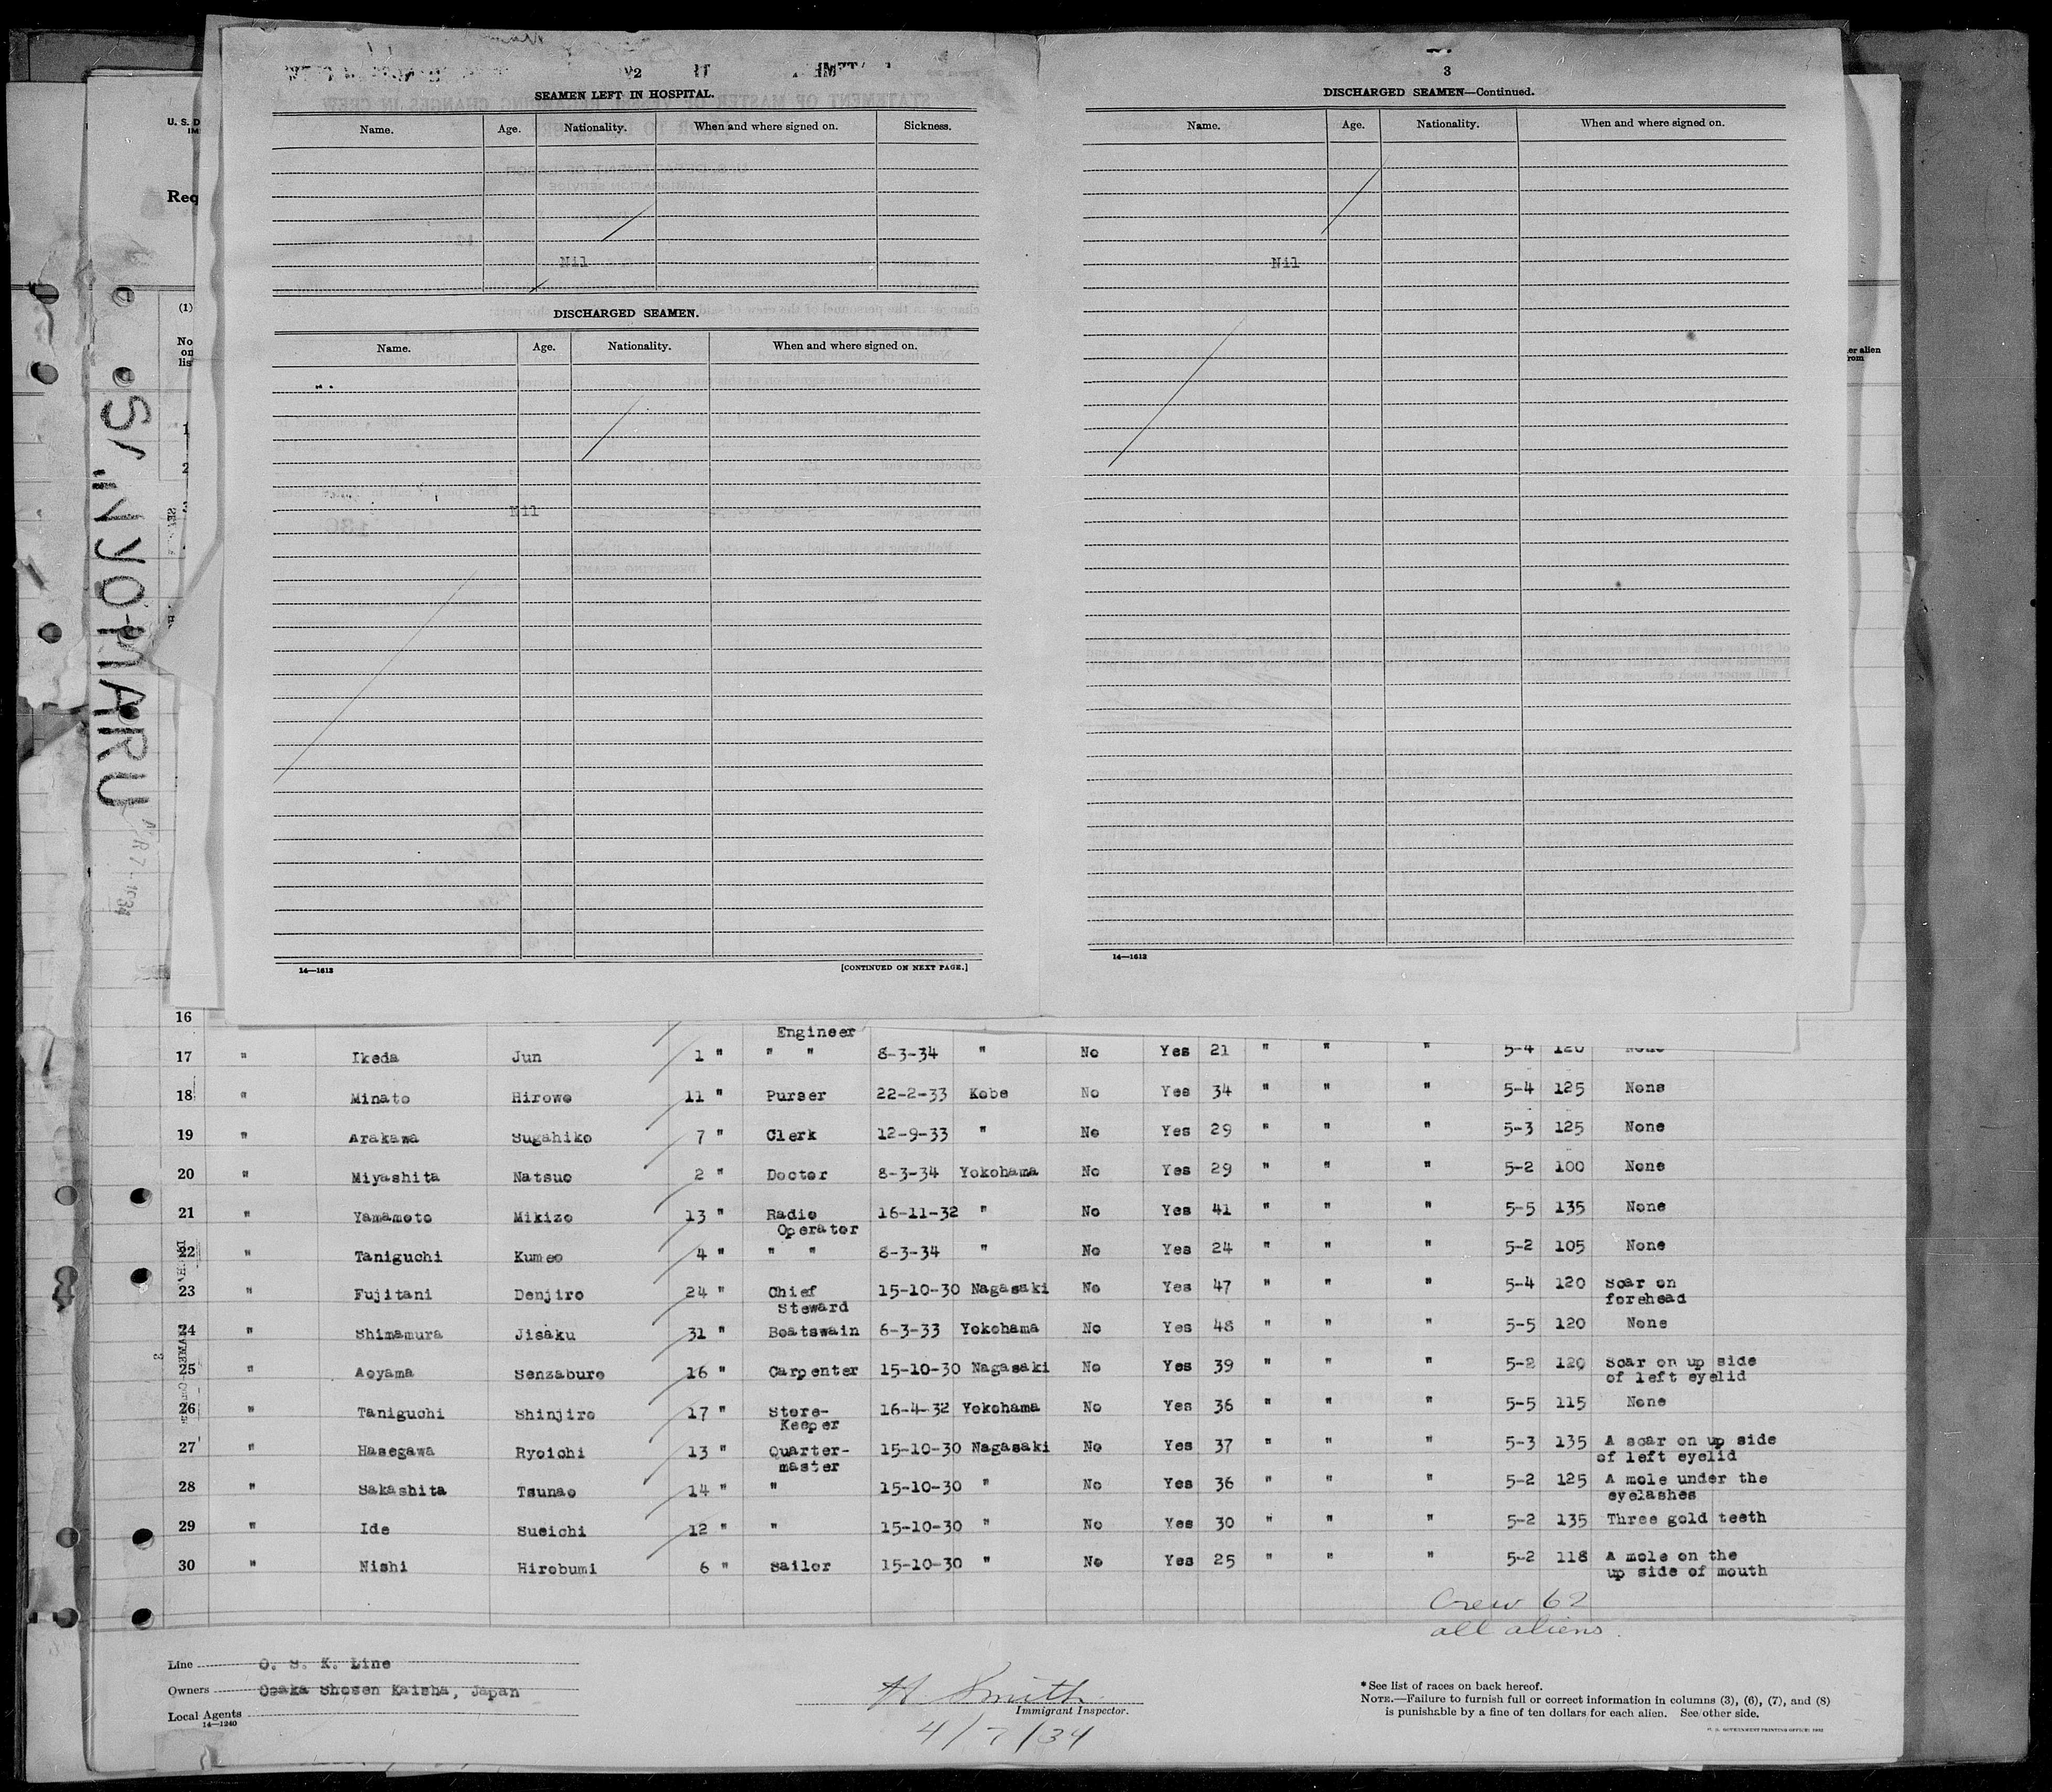 2
SEAMEN LEFT IN HOSPITAL.
Name. Age. Nationality. When and where signed on. Sickness.
Nil
DISCHARGED SEAMEN.
Name. Age. Nationality. When and where signed on.
Nil
14—1613 [CONTINUED ON NEXT PAGE.]
3
DISCHARGED SEAMEN—Continued.
Name. Age. Nationality. When and where signed on.
Nil
14—1612
U. S. D
IM
Req
(1)
No
on
lis
1
2
er alien
rom
YO MARU
16 Engineer
17 " Ikeda Jun 1 " " " 8-3-34 " No Yes 21 " " " 5-4 120 None
18 " Minato Hirowo 11 " Purser 22-2-33 Kobe No Yes 34 " " " 5-4 125 None
19 " Arakawa Sugahiko 7 " Clerk 12-9-33 " No Yes 29 " " " 5-3 125 None
20 " Miyashita Natsuo 2 " Doctor 8-3-34 Yokohama No Yes 29 " " " 5-2 100 None
21 " Yamamoto Mikizo 13 " Radio 16-11-32 " No Yes 41 " " " 5-5 135 None
Operator
22 " Taniguchi Kumeo 4 " " " 8-3-34 " No Yes 24 " " " 5-2 105 None
23 " Fujitani Denjiro 24 " Chief 15-10-30 Nagasaki No Yes 47 " " " 5-4 120 Scar on
Steward forehead
24 " Shimamura Jisaku 31 " Boatswain 6-3-33 Yokohama No Yes 48 " " " 5-5 120 None
25 " Aoyama Senzaburo 16 " Carpenter 15-10-30 Nagasaki No Yes 39 " " " 5-2 120 Scar on up side
of left eyelid
26 " Taniguchi Shinjiro 17 " Store- 16-4-32 Yokohama No Yes 36 " " " 5-5 115 None
Keeper
27 " Hasegawa Ryoichi 13 " Quarter- 15-10-30 Nagasaki No Yes 37 " " " 5-3 135 A scar on up side
master of left eyelid
28 " Sakashita Tsunao 14 " " 15-10-30 " No Yes 36 " " " 5-2 125 A mole under the
eyelashes
29 " Ide Sueichi 12 " " 15-10-30 " No Yes 30 " " " 5-2 135 Three gold teeth
30 " Nishi Hirobumi 6 " Sailor 15-10-30 " No Yes 25 " " " 5-2 118 A mole on the
up side of mouth
Crew 62
all aliens.
Line O. S. K. Line
Owners Osaka Shosen Kaisha, Japan
Local Agents
14—1240
H Smith
Immigrant Inspector.
4/7/34
* See list of races on back hereof.
NOTE.—Failure to furnish full or correct information in columns (3), (6), (7), and (8)
is punishable by a fine of ten dollars for each alien. See other side.
U. S. GOVERNMENT PRINTING OFFICE: 1932